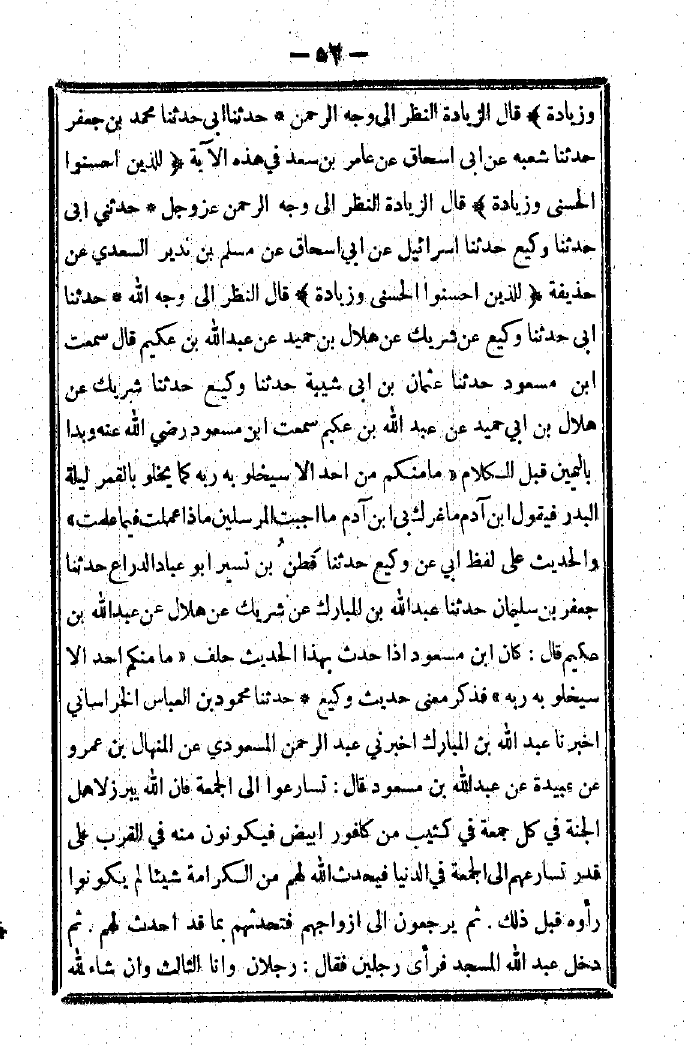 — ٥٢ —
وزيادة ﴾ قال الزيادة النظر الى وجه الرحمن * حدثنا ابي حدثنا محمد بن جعفر
حدثنا شعبه عن ابى اسحاق عن عامر بن سعد في هذه الآية ﴿ للذين احسنوا
الحسنى وزيادة ﴾ قال الزيادة النظر الى وجه الرحمن عزوجل * حدثني ابى
حدثنا وكيع حدثنا اسرائيل عن ابي اسحاق عن مسلم بن نذير السعدي عن
حذيفة ﴿ للذين احسنوا الحسنى وزيادة ﴾ قال النظر الى وجه الله * حدثنا
ابى حدثنا وكيع عن شريك عن هلال بن حميد عن عبدالله بن عكيم قال سمعت
ابن مسعود حدثنا عثمان بن ابى شيبة حدثنا وكيع حدثنا شريك عن
هلال بن ابي حميد عن عبد الله بن عكيم سمعت ابن مسعود رضي الله عنه وبدا
باليمين قبل الكلام « مامنكم من احد الا سيخلو به ربه كما يخلو بالقمر ليلة
البدر فيقول ابن آدم ماغرك بى ابن آدم مااجبت المرسلين ماذا عملت فيما علمت»
والحديث على لفظ ابي عن وكيع حدثنا قطنُ بن نسير ابو عباد الذراع حدثنا
جعفر بن سليمان حدثنا عبدالله بن المبارك عن شريك عن هلال عن عبدالله بن
عكيم قال : كان ابن مسعود اذا حدث بهذا الحديث حلف « ما منكم احد الا
سيخلو به ربه » فذكر معنى حديث وكيع * حدثنا محمود بن العباس الخراساني
اخبرنا عبد الله بن المبارك اخبرني عبد الرحمن المسعودي عن المنهال بن عمرو
عن عبيدة عن عبدالله بن مسعود قال : تسارعوا الى الجمعة فان الله يبرز لاهل
الجنة في كل جمعة في كثيب من كافور ابيض فيكونون منه في القرب على
قدر تسارعهم الى الجمعة في الدنيا فيحدث الله لهم من الكرامة شيئا لم يكونوا
رأوه قبل ذلك . ثم يرجعون الى ازواجهم فتحدثهم بما قد احدث لهم . ثم
دخل عبد الله المسجد فرأى رجلين فقال : رجلان وانا الثالث وان شاء لله